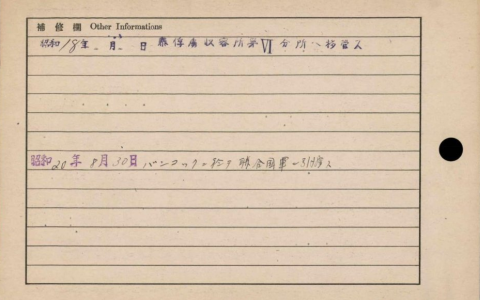 補修欄 Other Informations
昭和18年 月 日 泰俘虜収容所第VI分所へ移管ス
昭和20年8月30日バンコックニ於テ聯合国軍ヘ引渡ス